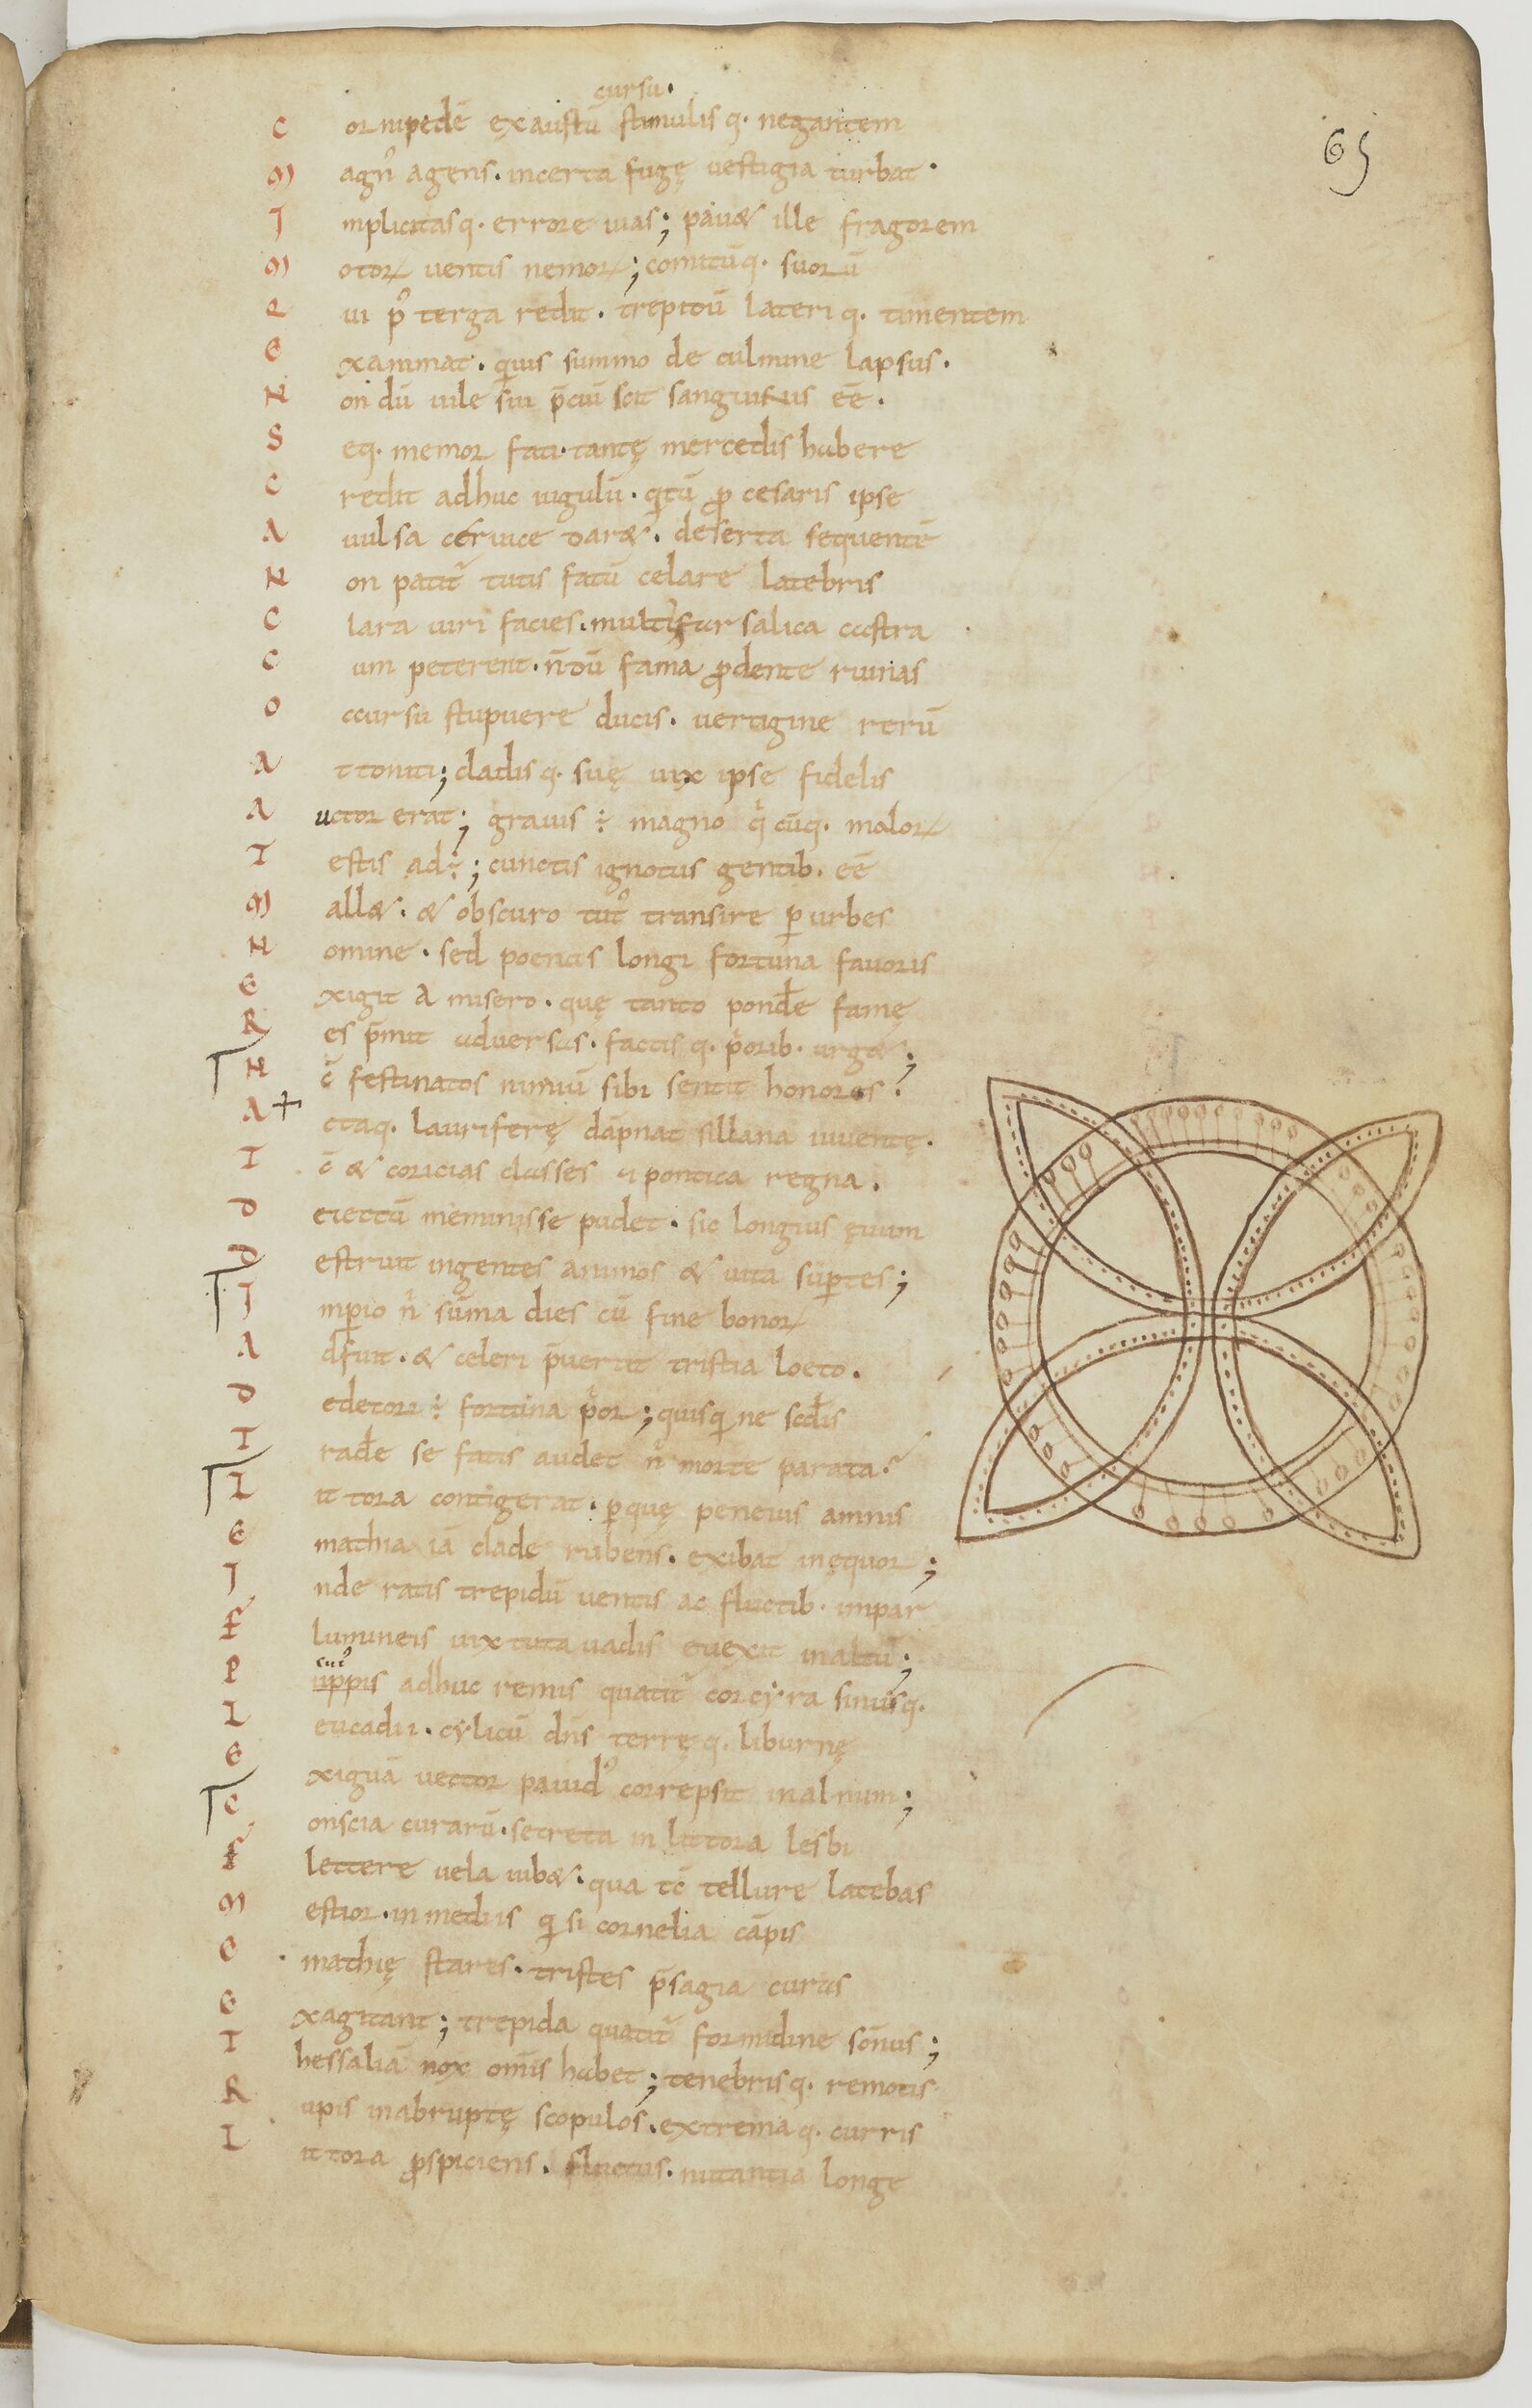 cursu.
65
C ornipedē exaustū stimulisq. negantem
M agn᷒ agens. incerta fugę uestigia turbat.
I mplicitasq. errore uias; pauet ille fragorem
M otoꝝ uentis nemoꝝ; comitūq. suorū
Q ui p᷒ terga redit. trepidū lateriq. timentem
E xanimat. quis summo de culmine lapsus.
N on dū uile sui p̄ciū scit sanguinis eē.
S eq. memor fati. tantę mercedis habere
C redit adhuc iugulū. qtū ꝓ cesaris ipse
A uulsa ceruice daret. deserta sequentē
N on patit᷑ tutis fatū celare latebris
C lara uiri facies. multi farsalica castra
C um peterent. n̄dū fama ꝓdente ruinas
O ccursu stupuere ducis. uertigine rerū
A ttoniti; cladisq. suę uix ipse fidelis
A uctor erat; grauis ÷ magno qͥcūq. maloꝝ
T estis ad÷; cunctis ignotus gentib. eē
M allet. & obscuro tut᷒ transire ꝑ urbes
N omine. sed poenas longi fortuna fauoris
E xigit a misero. quę tanto pondͤe famę
R es p̄mit aduersas. factisq. pͥorib. urget;
N c̄ festinatos nimiū sibi sentit honores.
A ctaq. lauriferę dāpnat sillana iuuentę.
T c̄ & coricias classes & pontica regna.
D eiectū meminisse pudet. sic longius ęuum
D estruit ingentes animos & uita suꝑtes;
I mꝑio nͥ sūma dies cū fine bonoꝝ
A dfuit. & celeri p̄uertit tristia loeto.
D edecori ÷ fortuna pͥor; quisqi ne scdͣis
T rade se fatis audet nͥ morte parata.
L ittora contigerat. ꝑ quę peneius amnis
E mathia iā clade rubens. exibat in ęquor;
I nde ratis trepidū uentis ac fluctib. impar
F lumineis uix tuta uadis euexit in altū;
cui᷒
P uppis adhuc remis quatit᷑ corcyra sinusq.
L eucadii. cylicū dn̄s terręq. liburnę
E xiguā uector pauid᷒ correpsit in alnum;
C onscia curarū. secreta in littora lesbi
F lectere uela iubet. qua tc̄ tellure latebas
M estior. in mediis qi si cornelia cāpis
E mathię stares. tristes p̄sagia curas
E xagitant; trepida quatit᷑ formidine sōnus;
T hessaliā nox om̄is habet; tenebrisq. remotis
R upis in abruptę scopulos. extremaq. curris
L ittora ꝓspiciens. fluctus. nutantia longe